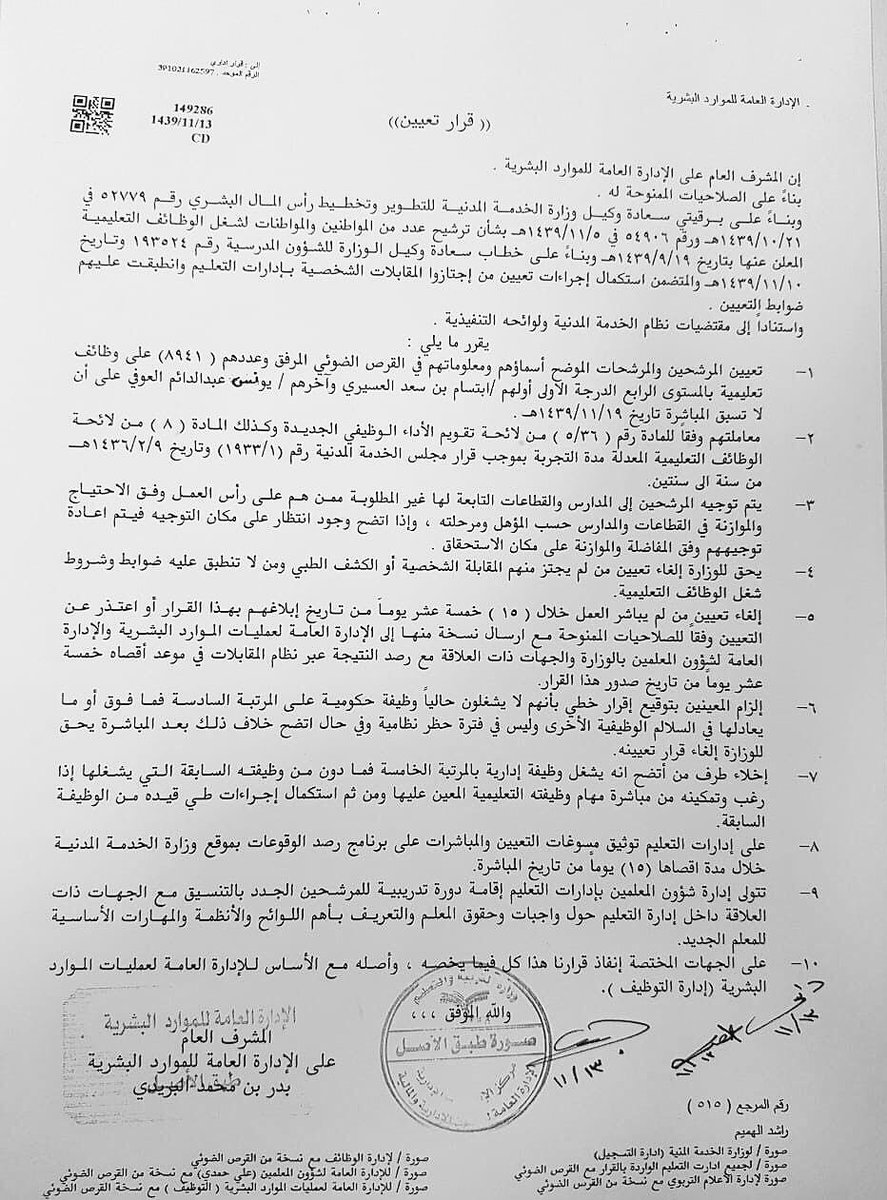 إلى : قرار إداري
الرقم الموحد . 391021162597
. الإدارة العامة للموارد البشرية
149286
1439/11/13
CD
(( قرار تعيين))
إن المشرف العام على الإدارة العامة للموارد البشرية .
بناءً على الصلاحيات الممنوحة له .
وبناءً على برقيتي سعادة وكيل وزارة الخدمة المدنية للتطوير وتخطيط رأس المال البشري رقم ٥٢٧٧٩ في
١٤٣٩/١٠/٢١هـ ورقم ٥٤٩٠٦ في ١٤٣٩/١١/٥هـ بشأن ترشيح عدد من المواطنين والمواطنات لشغل الوظائف التعليمية
المعلن عنها بتاريخ ١٤٣٩/٩/١٩هـ وبناءً على خطاب سعادة وكيل الوزارة للشؤون المدرسية رقم ١٩٣٥٢٤ وتاريخ
١٤٣٩/١١/١٠هـ والمتضمن استكمال إجراءات تعيين من إجتازوا المقابلات الشخصية بإدارات التعليم وانطبقت عليهم
ضوابط التعيين .
واستناداً إلى مقتضيات نظام الخدمة المدنية ولوائحه التنفيذية .
يقرر ما يلي :
١– تعيين المرشحين والمرشحات الموضح أسماؤهم ومعلوماتهم في القرص الضوئي المرفق وعددهم ( ٨٩٤١) على وظائف
تعليمية بالمستوى الرابع الدرجة الاولى أولهم /ابتسام بن سعد العسيري وآخرهم / يونس عبدالدائم العوفي على أن
لا تسبق المباشرة تاريخ ١٤٣٩/١١/١٩هـ .
٢– معاملتهم وفقاً للمادة رقم ( ٥/٣٦) من لائحة تقويم الأداء الوظيفي الجديدة وكذلك المادة ( ٨ ) من لائحة
الوظائف التعليمية المعدلة مدة التجربة بموجب قرار مجلس الخدمة المدنية رقم (١٩٣٣/١) وتاريخ ١٤٣٦/٢/٩هـ
من سنة الى سنتين.
٣– يتم توجيه المرشحين إلى المدارس والقطاعات التابعة لها غير المطلوبة ممن هم على رأس العمل وفق الاحتياج
والموازنة في القطاعات والمدارس حسب المؤهل ومرحلته ، وإذا اتضح وجود انتظار على مكان التوجيه فيتم اعادة
توجيههم وفق المفاضلة والموازنة على مكان الاستحقاق .
٤– يحق للوزارة إلغاء تعيين من لم يجتز منهم المقابلة الشخصية أو الكشف الطبي ومن لا تنطبق عليه ضوابط وشروط
شغل الوظائف التعليمية.
٥– إلغاء تعيين من لم يباشر العمل خلال ( ١٥ ) خمسة عشر يوماً من تاريخ إبلاغهم بهذا القرار أو اعتذر عن
التعيين وفقاً للصلاحيات الممنوحة مع ارسال نسخة منها إلى الإدارة العامة لعمليات الموارد البشرية والإدارة
العامة لشؤون المعلمين بالوزارة والجهات ذات العلاقة مع رصد النتيجة عبر نظام المقابلات في موعد أقصاه خمسة
عشر يوماً من تاريخ صدور هذا القرار.
٦– إلزام المعينين بتوقيع إقرار خطي بأنهم لا يشغلون حالياً وظيفة حكومية على المرتبة السادسة فما فوق أو ما
يعادلها في السلالم الوظيفية الأخرى وليس في فترة حظر نظامية وفي حال اتضح خلاف ذلك بعد المباشرة يحق
للوزارة إلغاء قرار تعيينه.
٧– إخلاء طرف من أتضح انه يشغل وظيفة إدارية بالمرتبة الخامسة فما دون من وظيفته السابقة التي يشغلها إذا
رغب وتمكينه من مباشرة مهام وظيفته التعليمية المعين عليها ومن ثم استكمال إجراءات طي قيده من الوظيفة
السابقة.
٨– على إدارات التعليم توثيق مسوغات التعيين والمباشرات على برنامج رصد الوقوعات بموقع وزارة الخدمة المدنية
خلال مدة اقصاها (١٥) يوماً من تاريخ المباشرة.
٩– تتولى إدارة شؤون المعلمين بإدارات التعليم إقامة دورة تدريبية للمرشحين الجدد بالتنسيق مع الجهات ذات
العلاقة داخل إدارة التعليم حول واجبات وحقوق المعلم والتعريف بأهم اللوائح والأنظمة والمهارات الأساسية
للمعلم الجديد.
١٠– على الجهات المختصة إنفاذ قرارنا هذا كل فيما يخصه ، وأصله مع الأساس للإدارة العامة لعمليات الموارد
البشرية (إدارة التوظيف ).
والله الموفق ،،،
وزارة التربية والتعليم
صورة طبق الأصل
الإدارة العامة للموارد البشرية
المشرف العام
على الإدارة العامة للموارد البشرية
بدر بن محمد البريدي
١١/١٣
١١/١٣
رقم المرجع ( ٥١٥ )
راشد الهميم
صورة / لوزارة الخدمة المنية (ادارة التسجيل)
صورة / لجميع ادارت التعليم الواردة بالقرار مع القرص الضوئي
صورة لإدارة الاعلام التربوي مع نسخة من القرص الضوئي
صورة / لإدارة الوظائف مع نسخة من القرص الضوئي
صورة / للإدارة العامة لشؤون المعلمين (علي حمدي) مع نسخة من القرص الضوئي
صورة / للإدارة العامة لعمليات الموارد البشرية ( التوظيف ) مع نسخة من القرص الضوئي